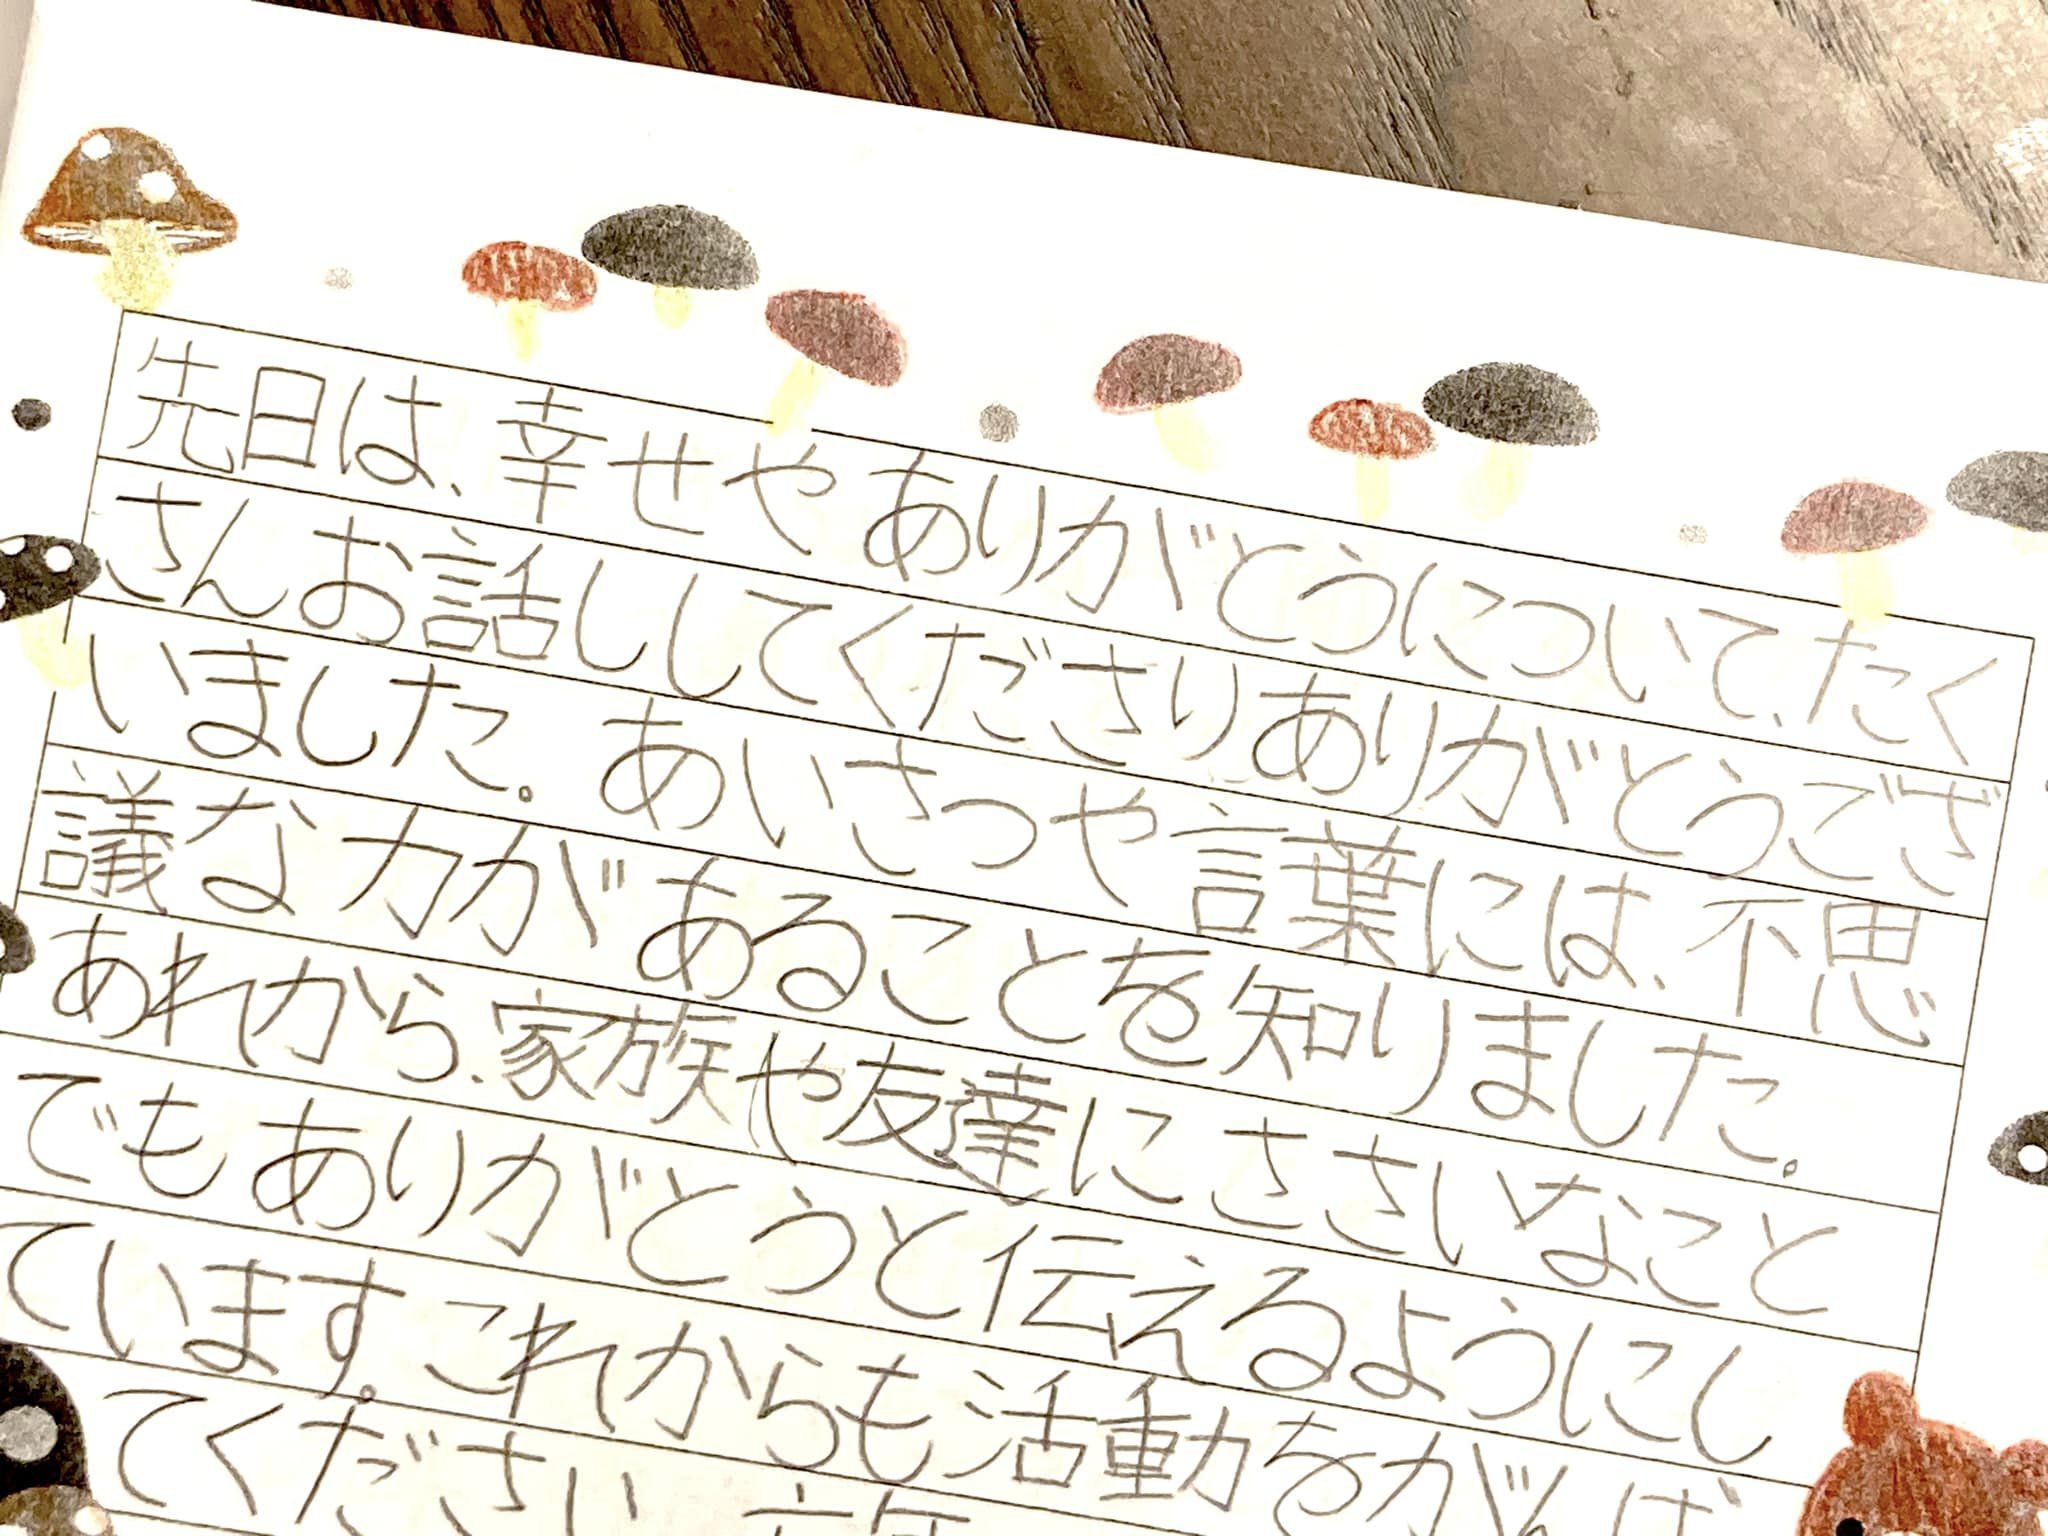 先日は、幸せやありがとうについて、たく
さんお話ししてくださりありがとうござ
いました。あいさつや言葉には、不思
議な力があることを知りました。
あれから、家族や友達にささいなこと
でもありがとうと伝えるようにし
ています。これからも活動をがんば
てください